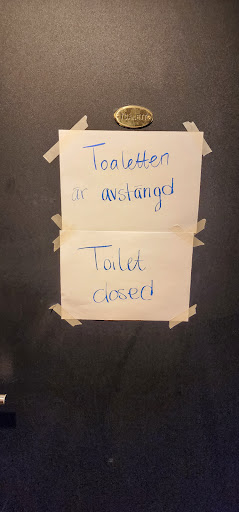 Toaletten
är avstängd
Toilet
closed